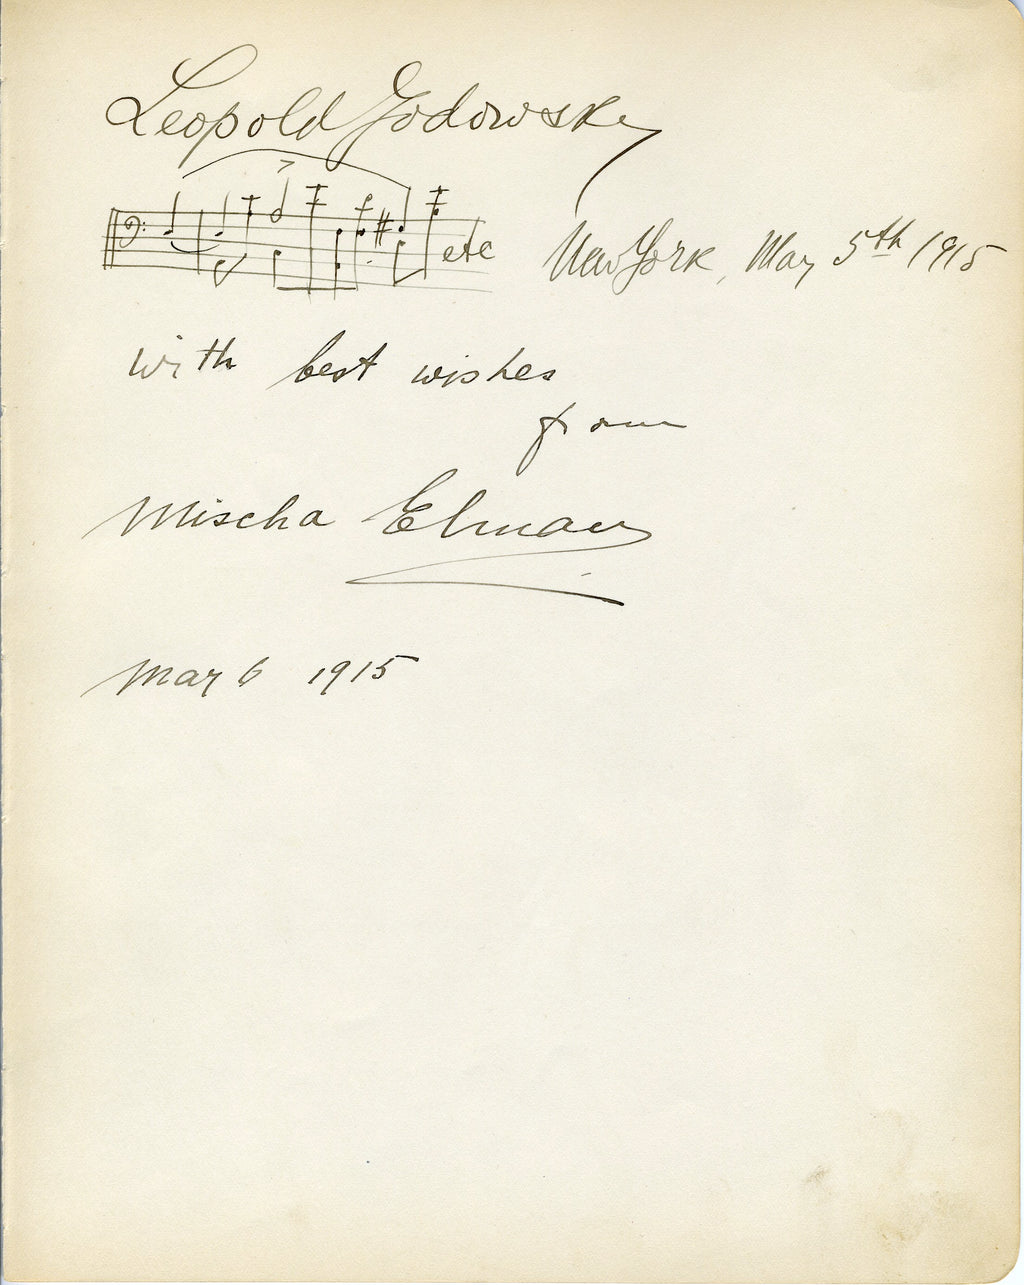 Leopold Godowsky
etc
New York, May 5th 1915
with best wishes
from
Mischa Elman
May 6 1915